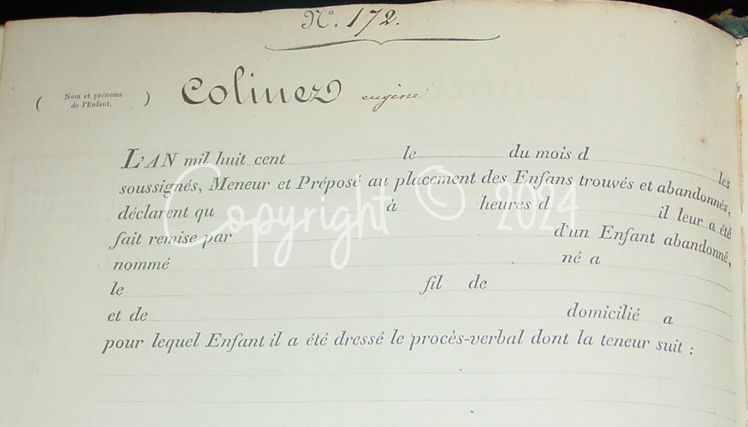 N°. 172.
( Nom et prénoms de l'Enfant. ) Colinez eugène
L'AN mil huit cent le du mois d les
soussignés, Meneur et Préposé au placement des Enfans trouvés et abandonnés,
déclarent qu à heures d il leur a été
fait remise par d'un Enfant abandonné,
nommé né a
le fil de
et de domicilié a
pour lequel Enfant il a été dressé le procès-verbal dont la teneur suit :
Copyright © 2024